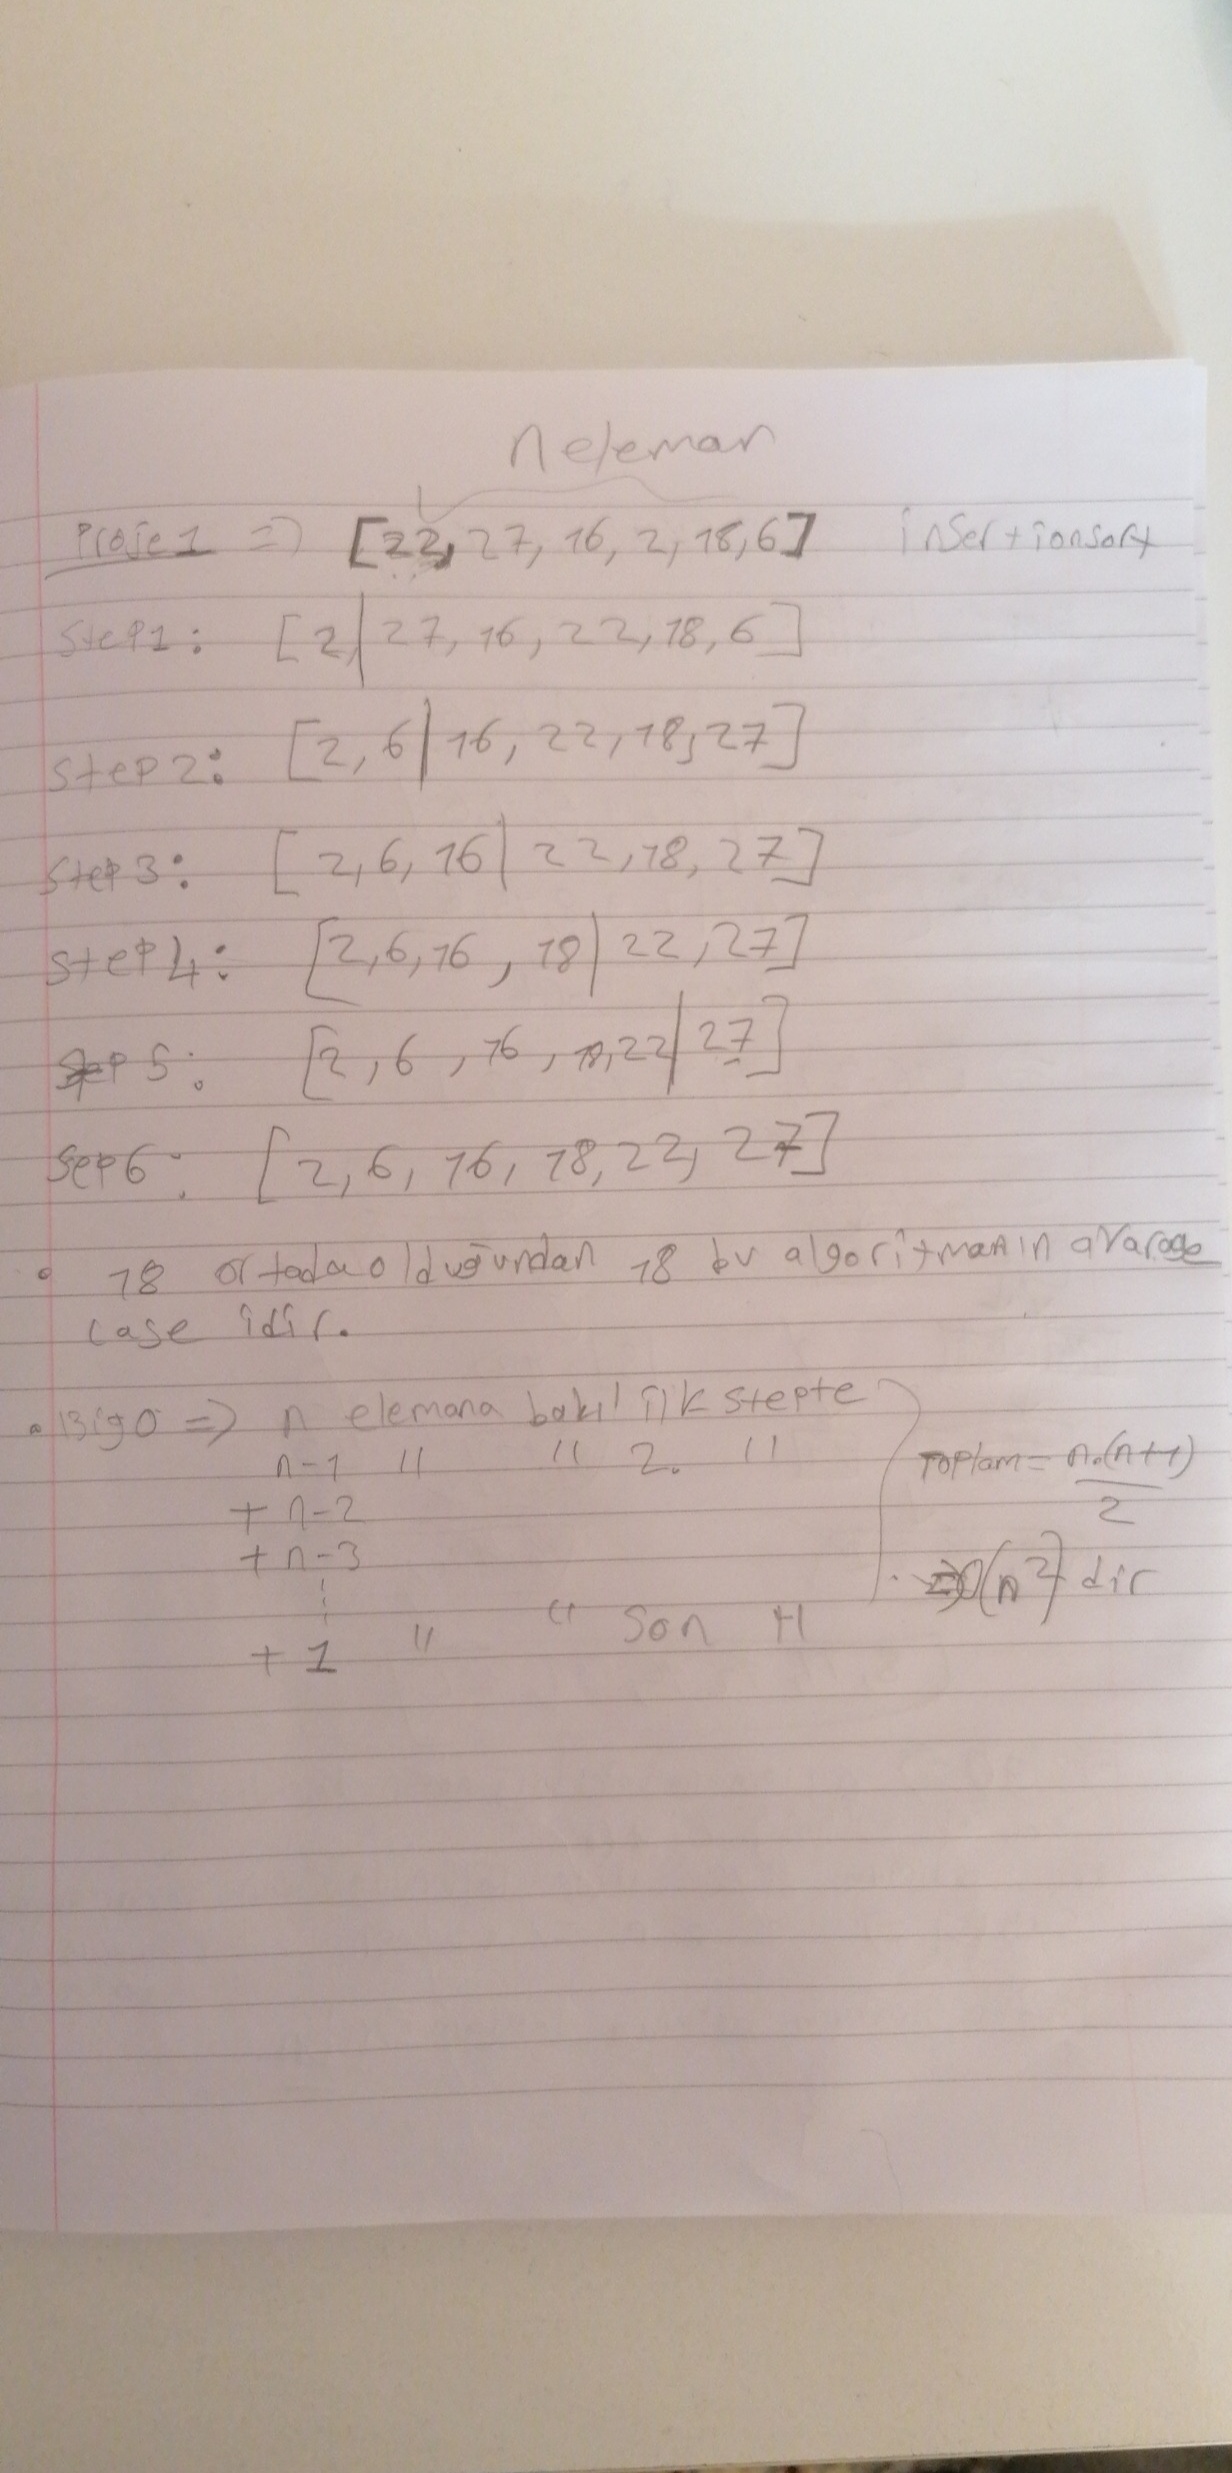 n eleman
Proje 1 => [22, 27, 16, 2, 18, 6] insertionsort
Step1: [2,| 27, 16, 22, 18, 6]
Step2: [2, 6| 16, 22, 18, 27]
Step3: [2, 6, 16| 22, 18, 27]
Step4: [2, 6, 16, 18| 22, 27]
Step 5: [2, 6, 16, 18, 22| 27]
Sep6: [2, 6, 16, 18, 22, 27]
• 18 ortada olduğundan 18 bu algoritmanın avarage
case idir.
• Big O => n elemana bakıl ilk stepte
n-1 " " 2. " Toplam = n.(n+1)/2
+ n-2
+ n-3
=>O(n²) dir
+ 1 " " son "